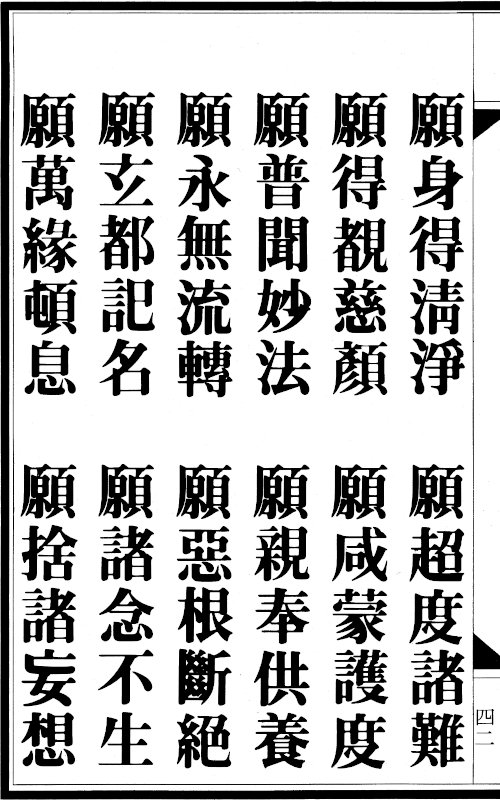 願身得清淨　願超度諸難
願得覩慈顏　願咸蒙護度
願普聞妙法　願親奉供養
願永無流轉　願惡根斷絕
願玄都記名　願諸念不生
願萬緣頓息　願捨諸妄想
四二